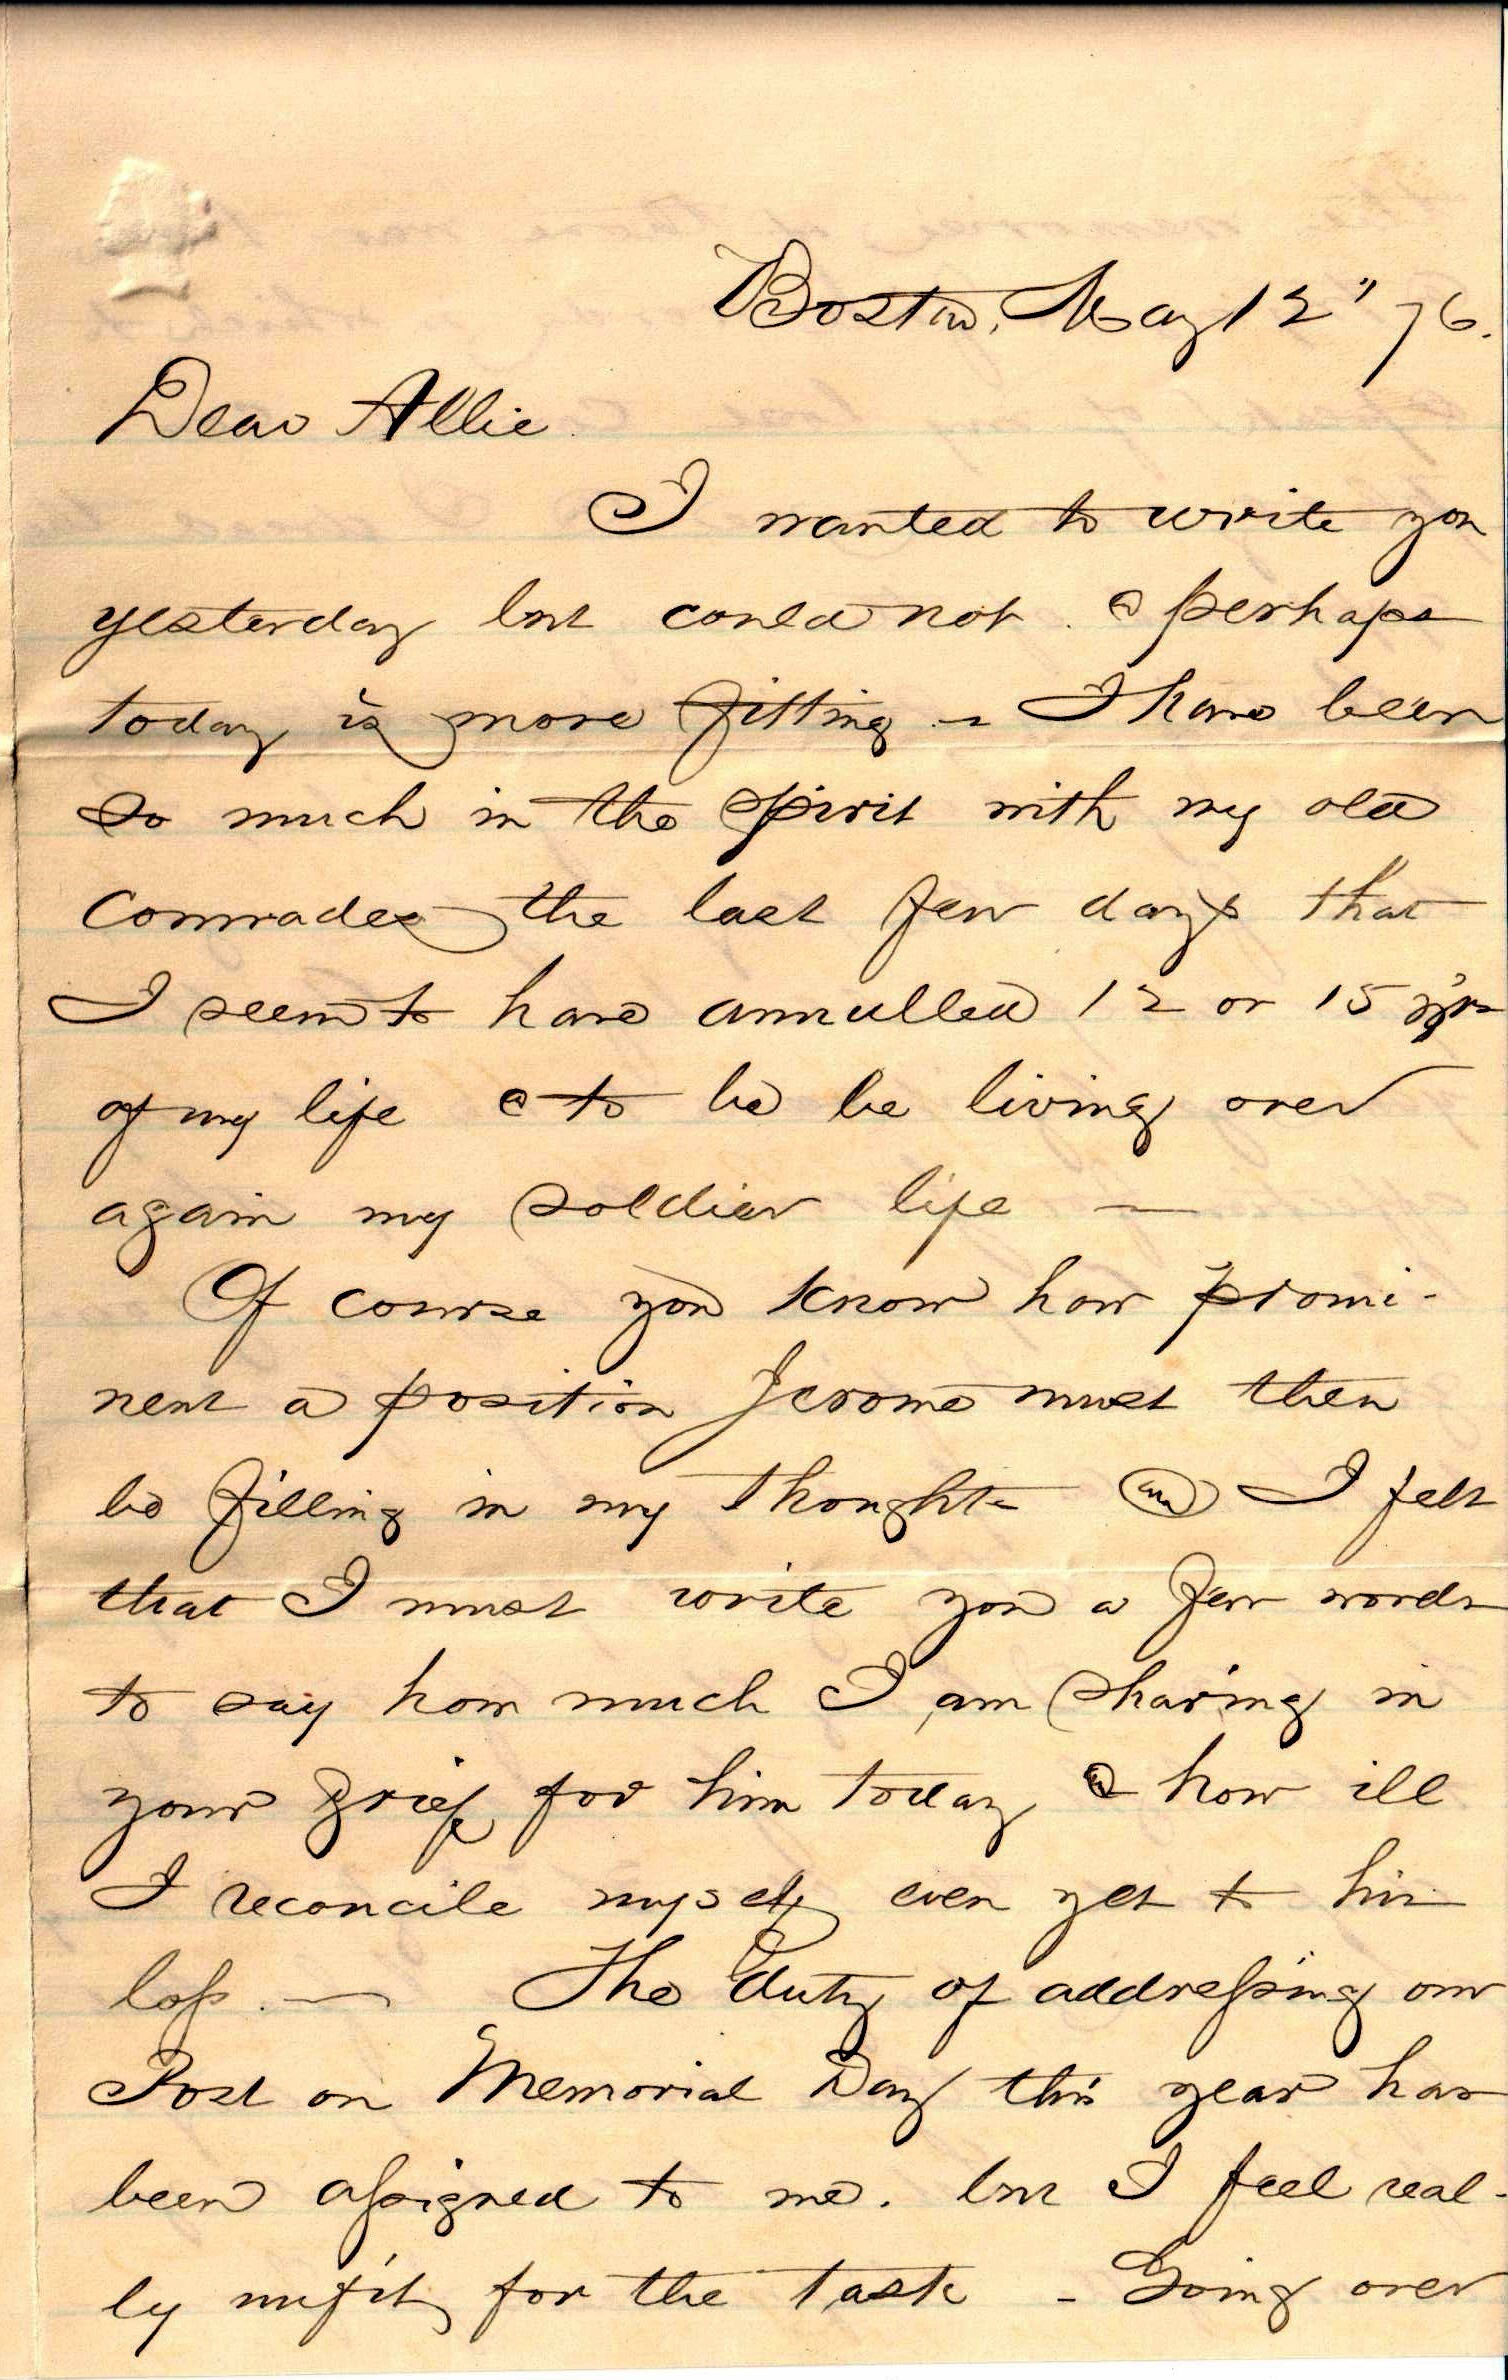 Boston, May 12" 76.
Dear Allie.
I wanted to write you
yesterday but could not. & perhaps
today is more fitting - I have been
so much in the spirit with my old
Comrades the last few days that
I seem to have annulled 12 or 15 y'rs
of my life & to be be living over
again my soldier life —
Of course you know how promi-
nent a position Jerome must then
be filling in my thoughts and I felt
that I must write you a few words
to say how much I am sharing in
your grief for him today & how ill
I reconcile myself even yet to his
loss. — The duty of addressing our
Post on Memorial Day this year has
been assigned to me. but I feel real-
ly unfit for the task - Going over